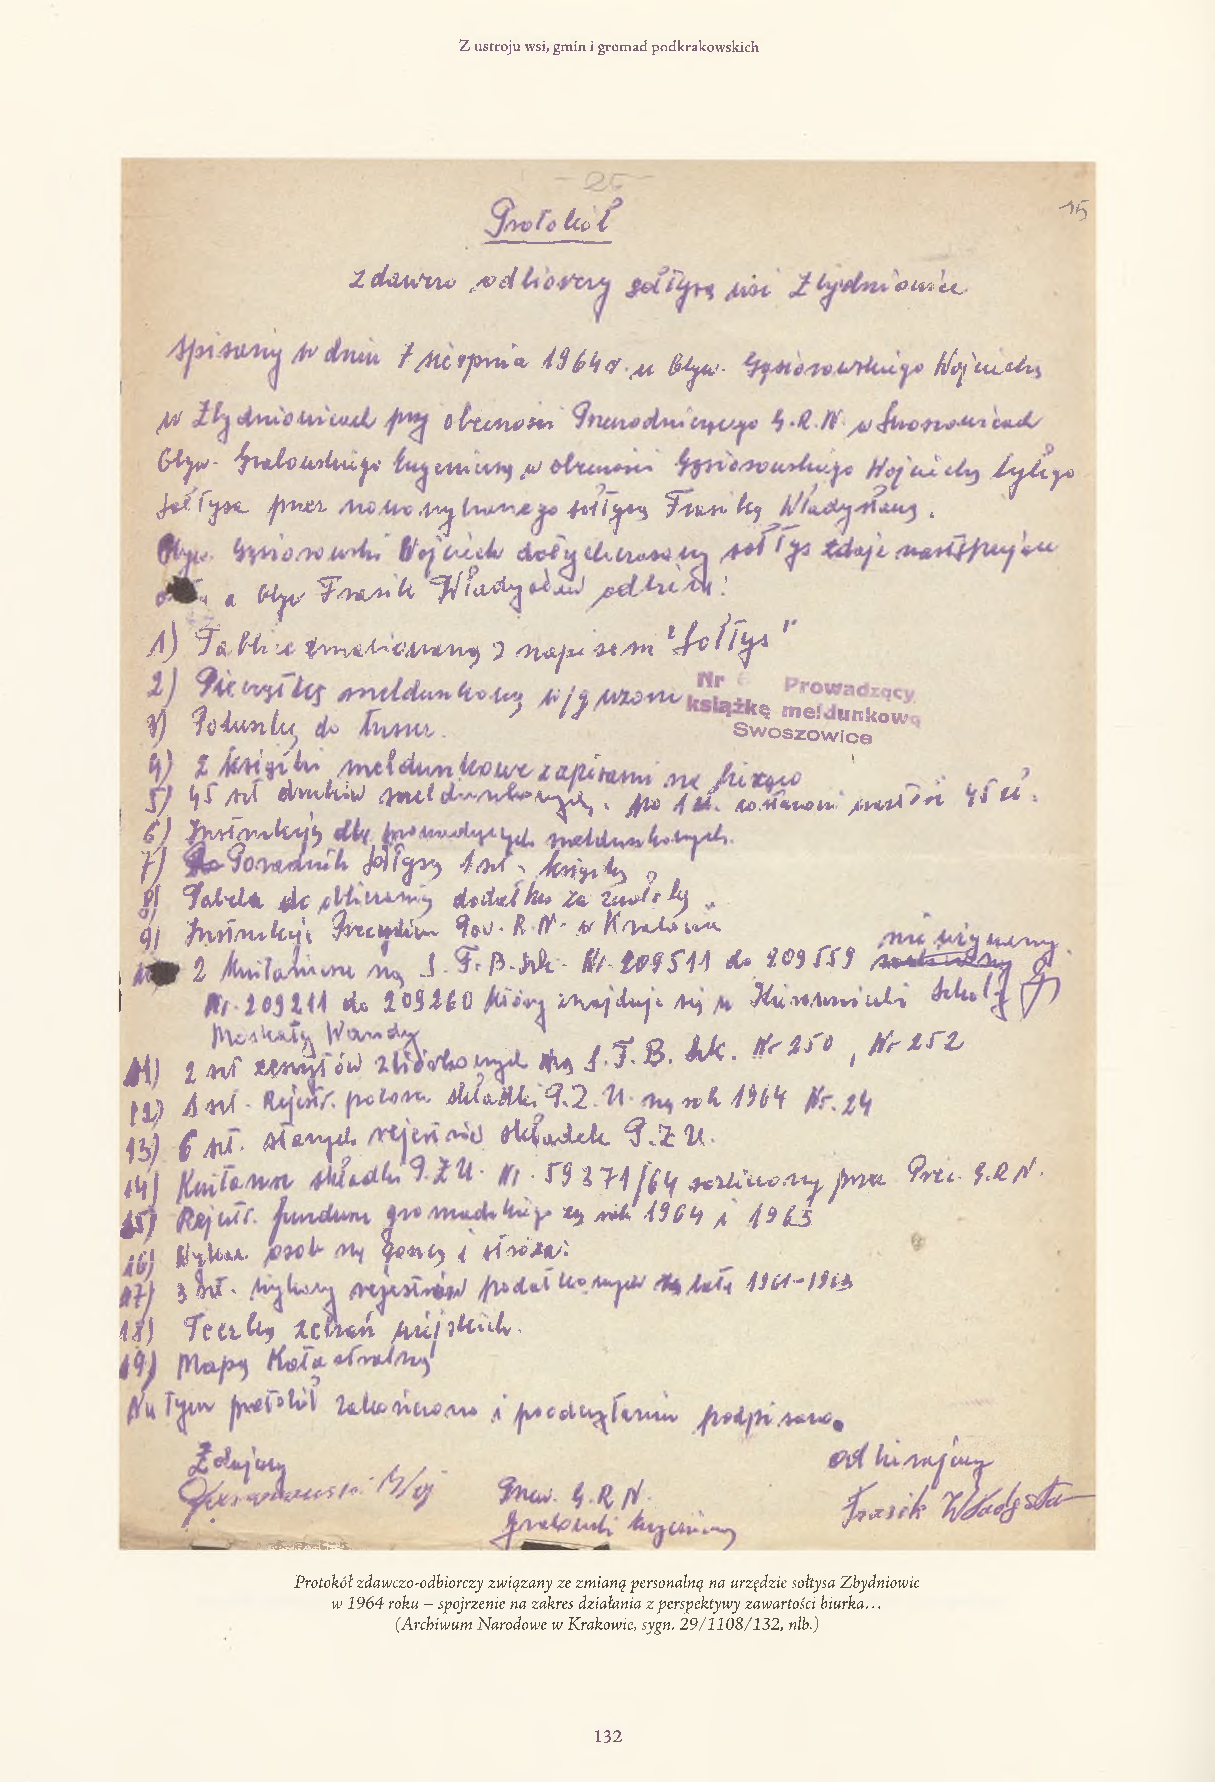 Z ustroju wsi, gmin i gromad podkrakowskich
- 25 -
15
Protokół
zdawczo odbiorczy sołtysa wsi Zbydniowice
spisany w dniu 7 sierpnia 1964 r. u Obyw. Gąsiorowskiego Wojciecha
w Zbydniowicach przy obecności Przewodniczącego G.R.N. w Swoszowicach
Obyw. Grabowskiego Eugeniusza w obecności Gąsiorowskiego Wojciecha byłego
sołtysa przez nowo wybranego sołtysa Frasika Władysława.
Obyw. Gąsiorowski Wojciech dotychczasowy sołtys zdaje następujące
a Obyw Frasik Władysław odbiera:
1) Tablice emaliowaną z napisem "Sołtys"
2) Pieczątkę meldunkową w/g wzoru
Nr 6 Prowadzący
książkę meldunkową
Swoszowice
3) Poduszkę do tuszu.
4) 2 książki meldunkowe z zapisami na bieżąco
5) 45 szt druków meldunkowych. po 1 zł. wartości 45 zł.
6) Instrukcję dla prowadzących meldunkowych.
7) Poradnik sołtysa 1 szt. książkę
8) Tabela do obliczania dodatku za zwłokę
9) Instrukcja Prezydium Pow. R.N. w Krakowie
2 Kwitariusze na S.F.B.Szk. Nr. 209511 do 209559 nie używany
Nr. 209211 do 209260 który znajduje się u Kierowniczki Szkoły
Moskały Wandy
11) 2 szt zeszytów zbiórkowych na S.F.B. Szk. Nr 250, Nr 252
12) 1 szt. Rejestr. poboru składki P.Z.U. na rok 1964 Nr. 24
13) 6 szt. starych rejestrów składek P.Z.U.
14) Kwitariusz składki P.Z.U. Nr. 59371/64 rozliczony przez Prez. G.R.N.
15) Rejestr. funduszu gromadzkiego za rok 1964 i 1965
16) Wykaz. osób na gońca i stróża.
17) 3 szt. wykazy rejestrów podatkowych za lata 1961-1963
18) Teczkę zebrań wiejskich.
19) Mapę Katastralną
Na tym protokół zakończono i po odczytaniu podpisano.
Zdający
Gąsiorowski Woj
Przew. G.R.N.
Grabowski Eugeniusz
odbierający
Frasik Władysław
Protokół zdawczo-odbiorczy związany ze zmianą personalną na urzędzie sołtysa Zbydniowic
w 1964 roku – spojrzenie na zakres działania z perspektywy zawartości biurka…
(Archiwum Narodowe w Krakowie, sygn. 29/1108/132, nlb.)
132